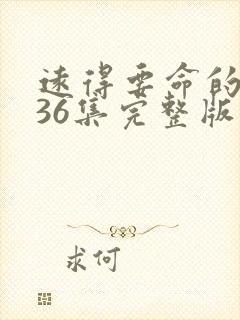 远得要命的
36集完整版
求何